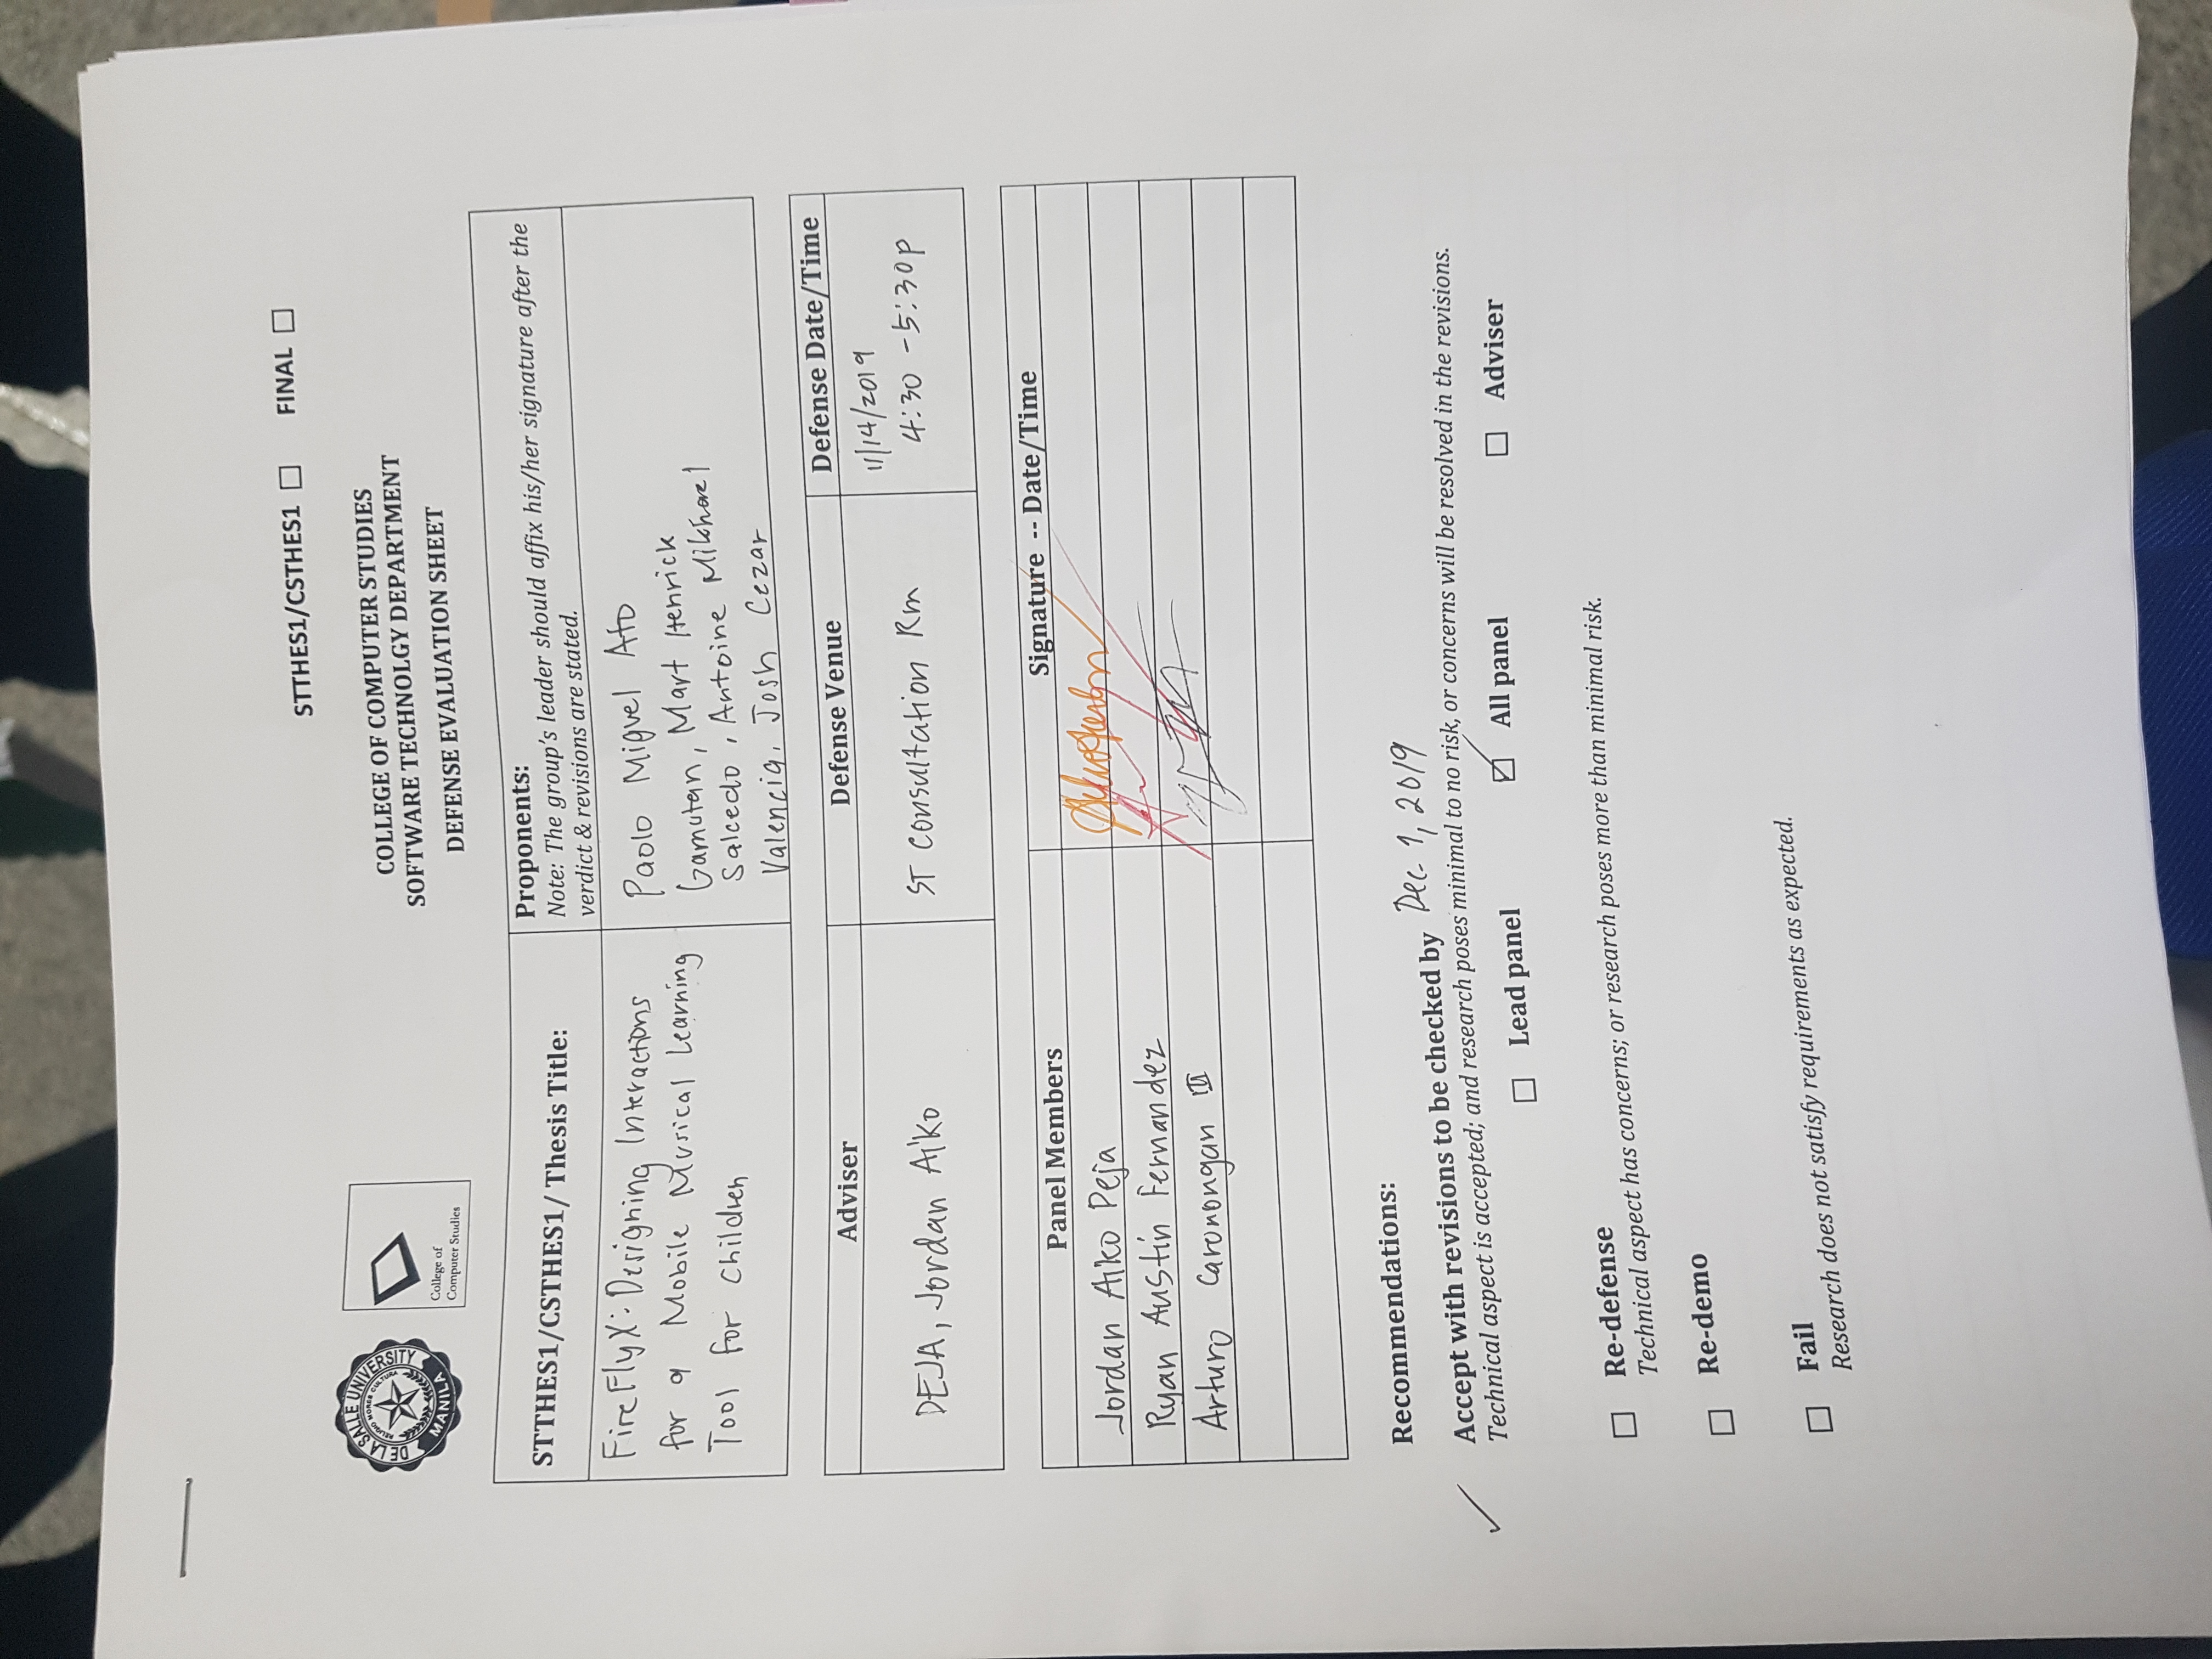 STTHES1/CSTHES1 ☐ FINAL ☐
DE LA SALLE UNIVERSITY
RELIGIO MORES CULTURA
MANILA
College of
Computer Studies
COLLEGE OF COMPUTER STUDIES
SOFTWARE TECHNOLGY DEPARTMENT
DEFENSE EVALUATION SHEET
STTHES1/CSTHES1/ Thesis Title:
Proponents:
Note: The group's leader should affix his/her signature after the
verdict & revisions are stated.
FireFlyX: Designing Interactions
for a Mobile Musical Learning
Tool for Children
Paolo Miguel Ato
Gamutan, Mart Henrick
Salcedo, Antoine Mikhael
Valencia, Josh Cezar
Adviser
Defense Venue
Defense Date/Time
DEJA, Jordan Aiko
ST Consultation Rm
11/14/2019
4:30 - 5:30p
Panel Members
Signature -- Date/Time
Jordan Aiko Deja
Ryan Austin Fernandez
Arturo Caronongan III
Recommendations:
Accept with revisions to be checked by Dec 1, 2019
Technical aspect is accepted; and research poses minimal to no risk, or concerns will be resolved in the revisions.
☐ Lead panel ☑ All panel ☐ Adviser
☐ Re-defense
Technical aspect has concerns; or research poses more than minimal risk.
☐ Re-demo
☐ Fail
Research does not satisfy requirements as expected.